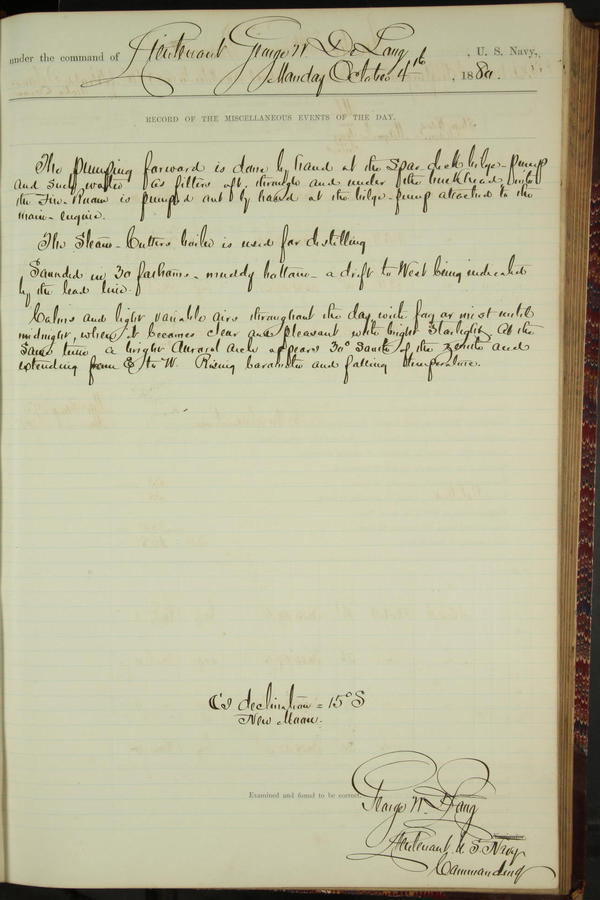 under the command of Lieutenant George W. De Long, U. S. Navy,
Monday October 4th, 1880.
RECORD OF THE MISCELLANEOUS EVENTS OF THE DAY.
The pumping forward is done by hand at the Spar deck bilge-pump
and such water as filters aft, through and under the bulkhead into
the Fire-Room is pumped out by hand at the bilge-pump attached to the
main-engine.
The Steam-Cutters boiler is used for distilling
Sounded in 30 fathoms - muddy bottom - a drift to West being indicated
by the lead line.
Calms and light variable airs throughout the day with fog or mist until
midnight, when it becomes clear and pleasant with bright Starlight. At the
Same time a bright Auroral arch appears 30° South of the zenith and
extending from E to W. Rising barometer and falling temperature.
☾'s declination = 15° S
New Moon.
Examined and found to be correct.
George W. De Long
Lieutenant U. S. Navy
Commanding